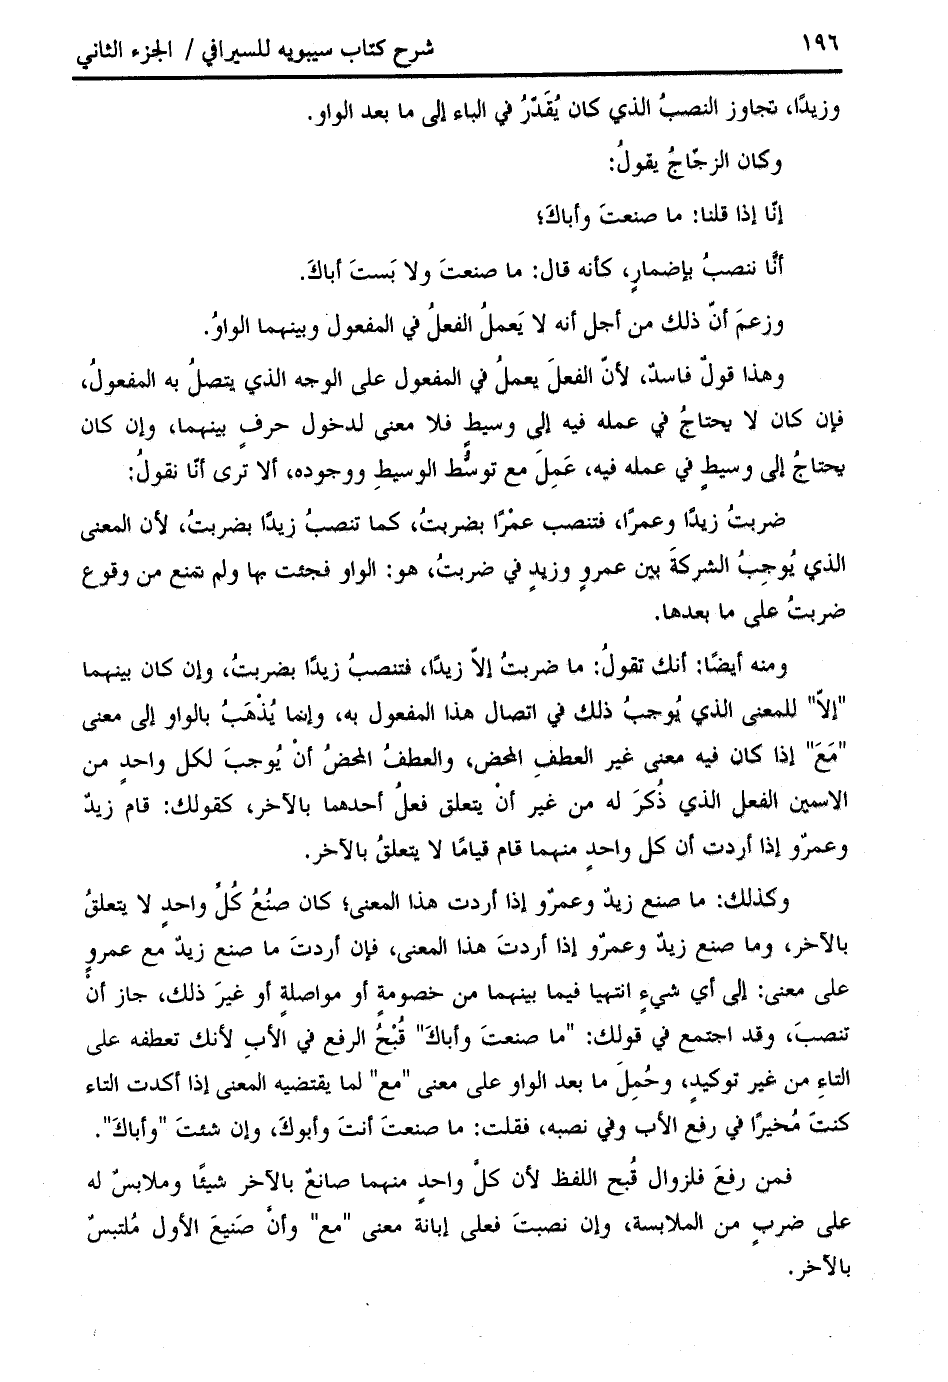 ١٩٦
شرح كتاب سيبويه للسيرافي / الجزء الثاني
وزيدًا، تجاوز النصبُ الذي كان يُقَدَّرُ في الباء إلى ما بعد الواو.
وكان الزجّاجُ يقولُ:
إنّا إذا قلنا: ما صنعتَ وأباكَ؛
أنَّا ننصبُ بإضمارٍ، كأنه قال: ما صنعتَ ولا بَستَ أباكَ.
وزعمَ أنّ ذلك من أجل أنه لا يَعملُ الفعلُ في المفعول وبينهما الواوُ.
وهذا قولٌ فاسدٌ، لأنّ الفعلَ يعملُ في المفعول على الوجه الذي يتصلُ به المفعولُ،
فإن كان لا يحتاجُ في عمله فيه إلى وسيطٍ فلا معنى لدخول حرفٍ بينهما، وإن كان
يحتاجُ إلى وسيطٍ في عمله فيه، عَمِلَ مع توسُّط الوسيطِ ووجوده، ألا ترى أنّا نقولُ:
ضربتُ زيدًا وعمرًا، فتنصب عمْرًا بضربتُ، كما تنصبُ زيدًا بضربتُ، لأن المعنى
الذي يُوجِبُ الشركةَ بين عمروٍ وزيدٍ في ضربتُ، هو: الواو فجئت بها ولم تمنع من وقوع
ضربتُ على ما بعدها.
ومنه أيضًا: أنك تقولُ: ما ضربتُ إلاّ زيدًا، فتنصبُ زيدًا بضربتُ، وإن كان بينهما
"إلاّ" للمعنى الذي يُوجبُ ذلك في اتصال هذا المفعول به، وإنما يُذْهَبُ بالواو إلى معنى
"مَعَ" إذا كان فيه معنى غير العطفِ المحض، والعطفُ المحضُ أنْ يُوجبَ لكل واحدٍ من
الاسمين الفعل الذي ذُكرَ له من غير أنْ يتعلق فعلُ أحدهما بالآخر، كقولك: قام زيدٌ
وعمرٌو إذا أردت أن كل واحدٍ منهما قام قيامًا لا يتعلقُ بالآخر.
وكذلك: ما صنع زيدٌ وعمرٌو إذا أردت هذا المعنى؛ كان صنُعُ كُلِّ واحدٍ لا يتعلقُ
بالآخر، وما صنع زيدٌ وعمرٌو إذا أردتَ هذا المعنى، فإن أردتَ ما صنع زيدٌ مع عمروٍ
على معنى: إلى أي شيءٍ انتهيا فيما بينهما من خصومةٍ أو مواصلةٍ أو غيرَ ذلك، جاز أنْ
تنصبَ، وقد اجتمع في قولك: "ما صنعتَ وأباكَ" قُبْحُ الرفع في الأبِ لأنك تعطفه على
التاءِ من غير توكيدٍ، وحُمِلَ ما بعد الواو على معنى "مع" لما يقتضيه المعنى إذا أكدت التاء
كنتَ مُخيرًا في رفع الأب وفي نصبه، فقلت: ما صنعتَ أنتَ وأبوكَ، وإن شئتَ "وأباكَ".
فمن رفعَ فلزوال قُبح اللفظ لأن كلَّ واحدٍ منهما صانعٌ بالآخر شيئًا وملابسٌ له
على ضربٍ من الملابسة، وإن نصبتَ فعلى إبانة معنى "مع" وأنَّ صَنيعَ الأول مُلتبسٌ
بالآخر.